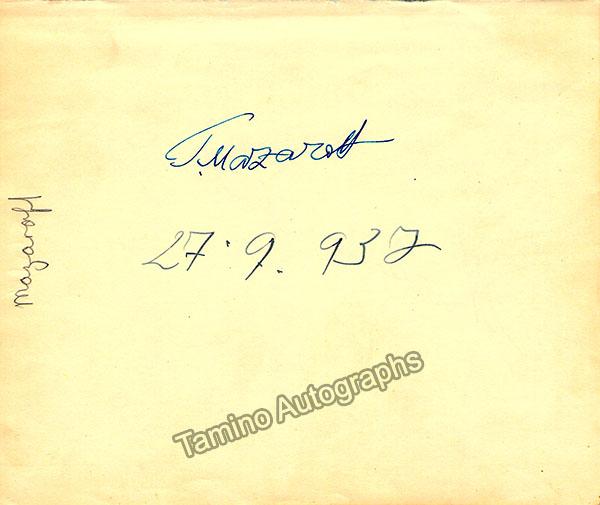 T. Mazaroff
27.9.937
Mazaroff
Tamino Autographs